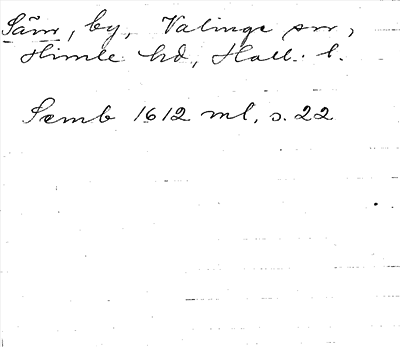 Särr, by, Valinge sn,
Himle hd, Hall. l.
Semb 1612 ml, s. 22